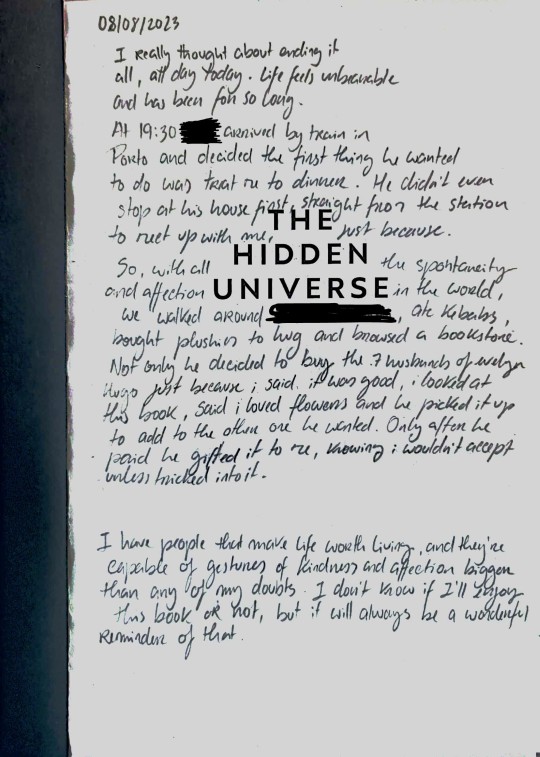 08/08/2023
I really thought about ending it
all, all day today. Life feels unbearable
and has been for so long.
At 19:30 arrived by train in
Porto and decided the first thing he wanted
to do was treat me to dinner. He didn't even
stop at his house first, straight from the station
to meet up with me, just because.
THE
HIDDEN
UNIVERSE
So, with all the spontaneity
and affection in the world,
we walked around , ate kebabs,
bought plushies to hug and browsed a bookstore.
Not only he decided to buy the 7 husbands of evelyn
hugo just because i said it was good, i looked at
this book, said i loved flowers and he picked it up
to add to the other one he wanted. Only after he
paid he gifted it to me, knowing i wouldn't accept
unless tricked into it.
I have people that make life worth living, and they're
capable of gestures of kindness and affection bigger
than any of my doubts. I don't know if I'll enjoy
this book or not, but it will always be a wonderful
reminder of that.